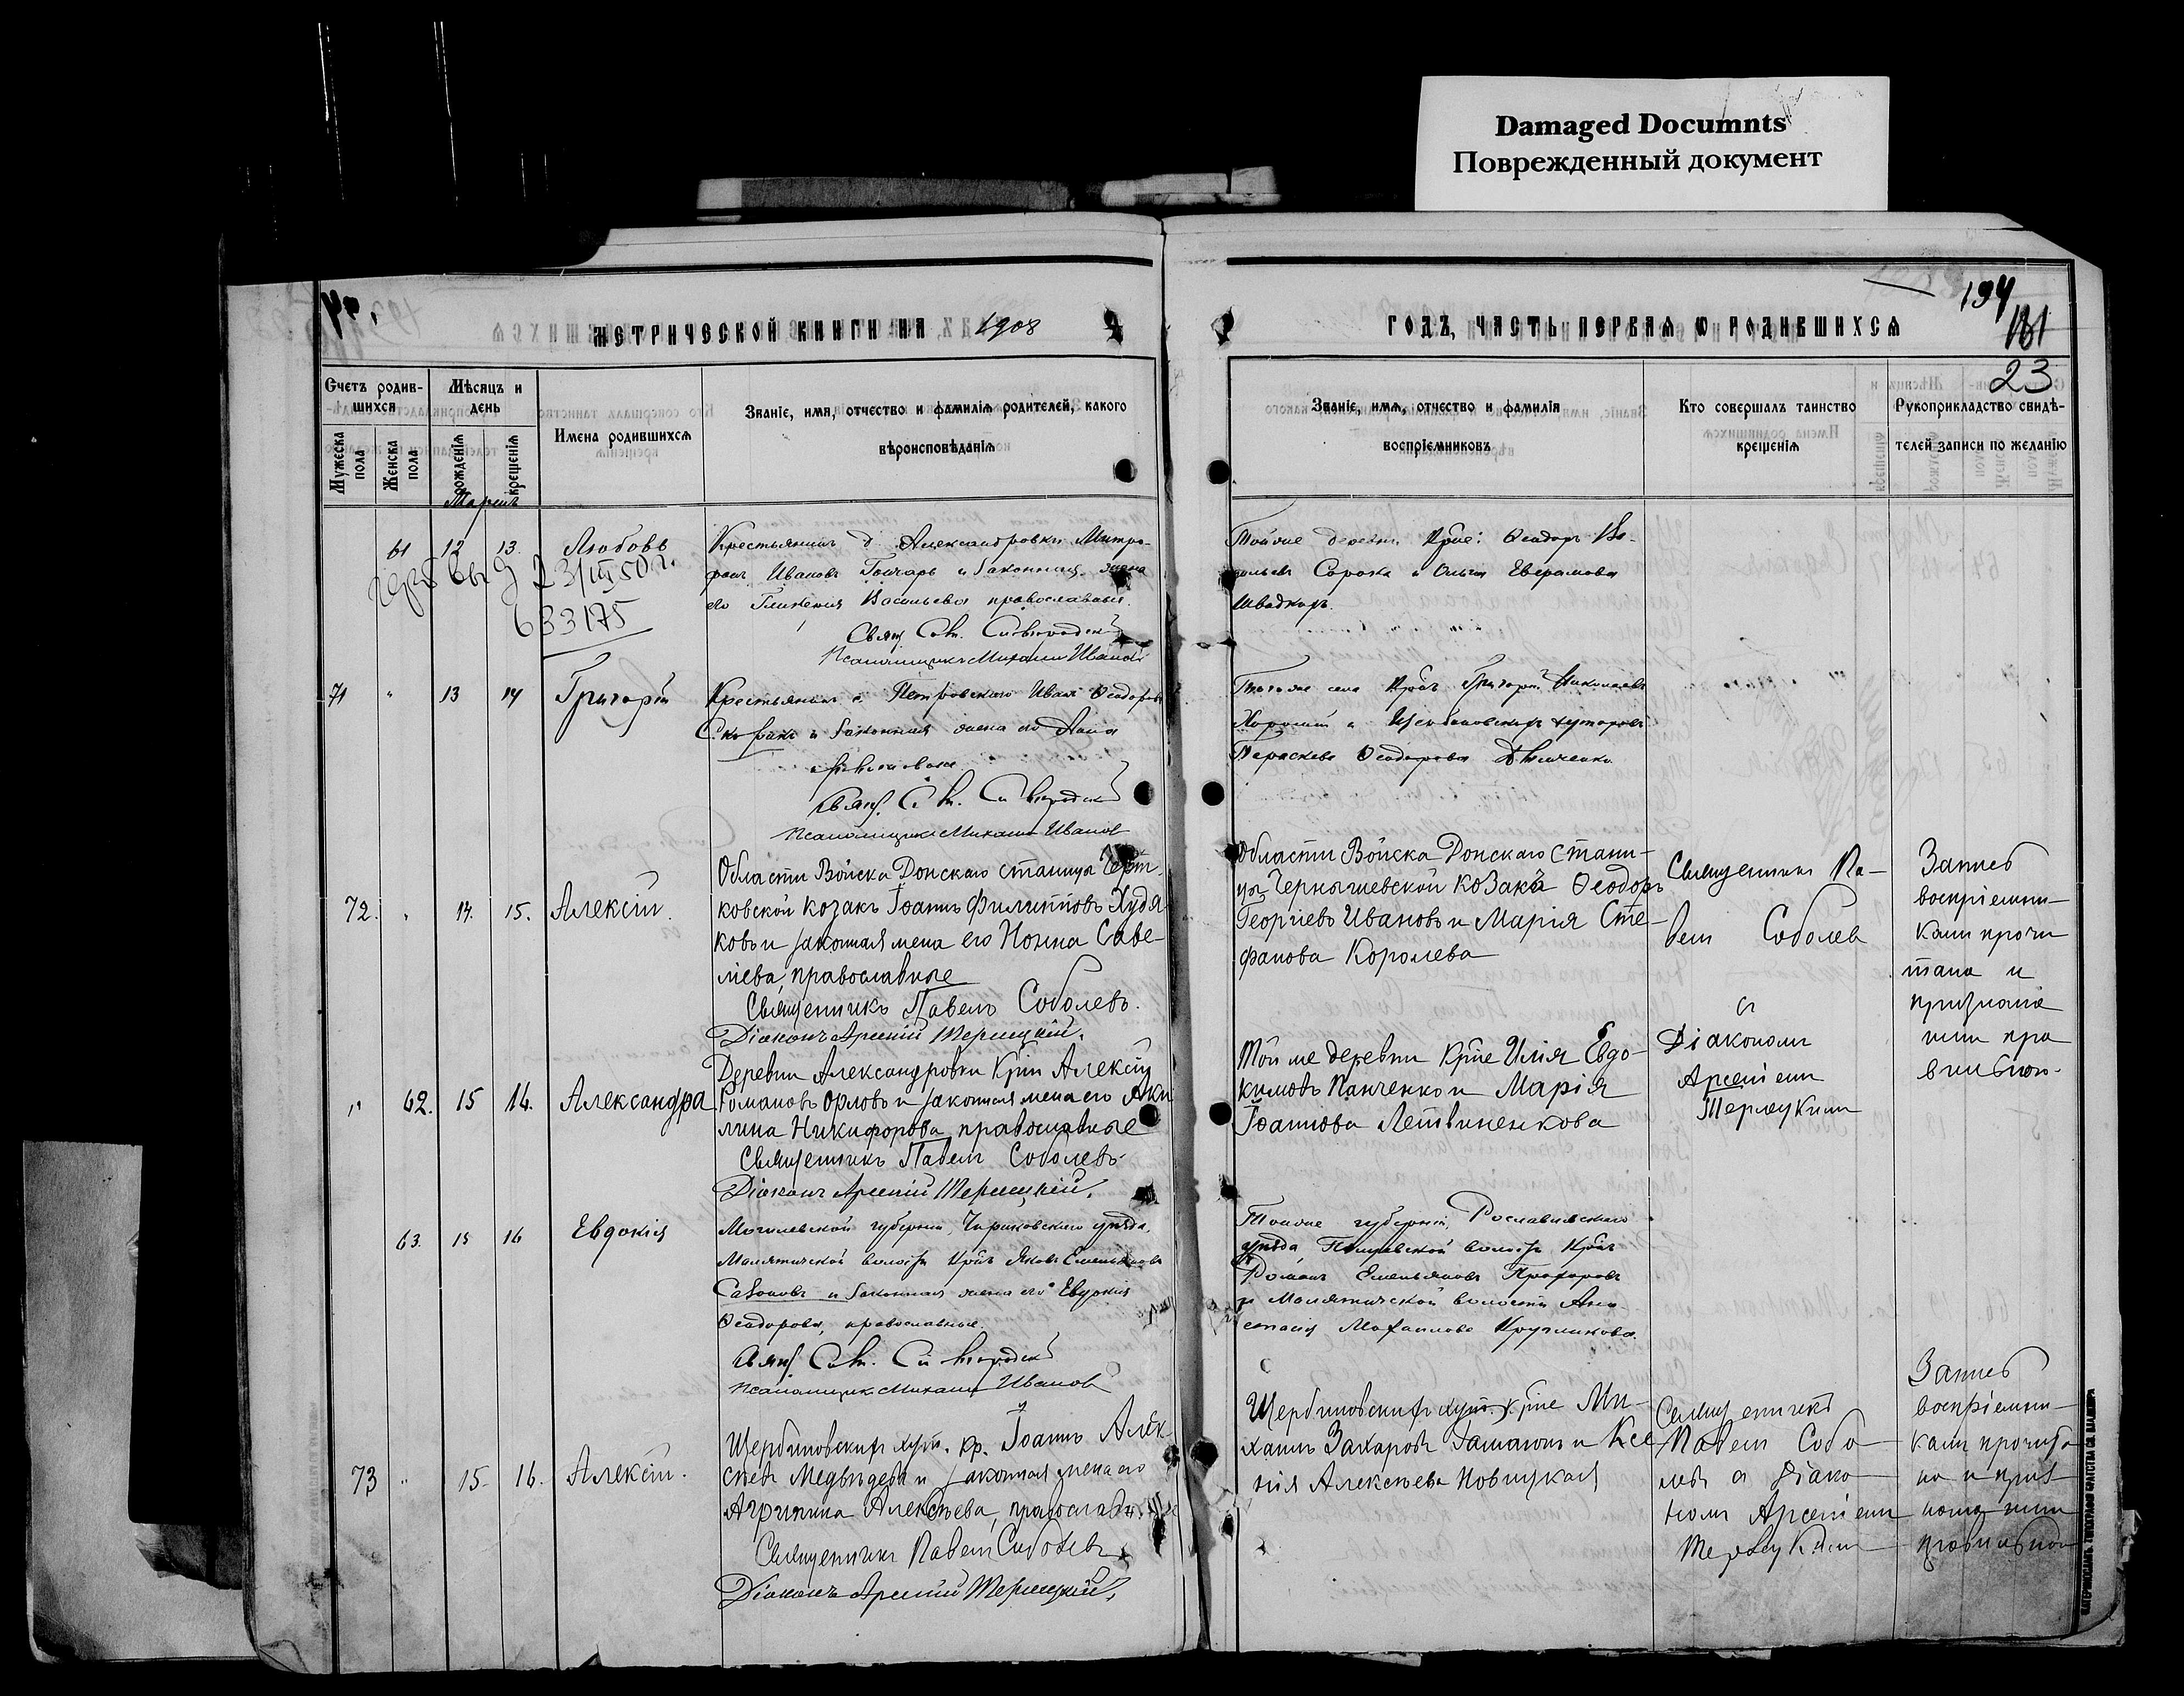 Damaged Documnts
Поврежденный документ
МЕТРИЧЕСКОЙ КНИГИ НА 1908
ГОДЪ, ЧАСТЬ ПЕРВАЯ Ѡ РОДИВШИХСЯ
194
181
23
Счетъ родив-
шихся
Мужеска
пола
Женска
пола
Мѣсяцъ и
день
рожденія
крещенія
Имена родившихся
Званіе, имя, отчество и фамилія родителей, какого
вѣроисповѣданія
Званіе, имя, отчество и фамилія
воспріемниковъ
Кто совершалъ таинство
крещенія
Рукоприкладство свидѣ-
телей записи по желанію
Мартъ
61 12 13. Любовь
23/III 50 г.
633175
Крестьянинъ д. Александровки Митро-
фанъ Ивановъ Гончарь и законная жена
его Гликерія Васильева православные.
Свящ.
Псаломщикъ Михаилъ Ивановъ
Тойже деревни Крне: Ѳеодоръ
Сорока и Ольга
71 " 13 14 Григорій
Крестьянинъ с. Петровскаго Иванъ Ѳеодоровъ
и законная жена его Анна
Свящ.
Псаломщикъ Михаилъ Ивановъ
Тогоже села Крнъ Григорій Николаевъ
и Щербиновскихъ хуторовъ
Параскева Ѳеодорова
72. " 14. 15. Алексій.
Области Войска Донскаго станицы Черт-
ковской козакъ Іоаннъ Филипповъ Худя-
ковъ и законная жена его Нонна Саве-
лиева, православные
Священникъ Павелъ Соболевъ.
Діаконъ Арсеній Терлецкій.
Области Войска Донскаго стани-
цы Чернышевской козакъ Ѳеодоръ
Георгіевъ Ивановъ и Марія Сте-
фанова Королева
Священникъ Па-
велъ Соболев
съ
Діакономъ
Арсеніемъ
Терлецкимъ
Запись
воспріемни-
ками прочи
тана и
признана
ими пра
вильною.
" 62. 15 16. Александра
Деревни Александровки Крнъ Алексій
Романовъ Орловъ и законная жена его Аки
лина Никифорова, православные
Священникъ Павелъ Соболевъ
Діаконъ Арсеній Терлецкій.
Той же деревни Крне Илія Евдо-
кимовъ Панченко и Марія
Іоаннова Летвиненкова
63. 15 16 Евдокія
Могилевской губерніи, Чериковскаго уѣзда,
Молятичской волости Крнъ Яковъ Емельяновъ
Сазоновъ и законная жена его Евдокія
Ѳеодорова, православные.
Свящ.
Псаломщикъ Михаилъ Ивановъ
Тойже губерніи, Рославльскаго
уѣзда, волости Крнъ
Романъ Емельяновъ Прохоровъ
и Молятичской волости Ана-
стасія Михаилова Кругликова.
73 " 15. 16. Алексій.
Щербиновскихъ хут. кр. Іоаннъ Алек-
сѣевъ Медвѣдевъ и законная жена его
Агрипина Алексѣева, православные
Священникъ Павелъ Соболевъ
Діаконъ Арсеній Терлецкій.
Щербиновскихъ хут. крне Ми-
хаилъ Захаровъ и Ксе-
нія Алексѣева Новицкая
Священникъ
Павелъ Собо
левъ съ Діако
номъ Арсеніемъ
Терлецкимъ
Запись
воспріемни-
ками прочита
на и приз-
нана ими
правильной